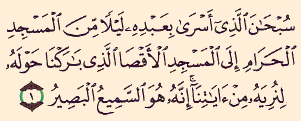 سُبْحَانَ الَّذِي أَسْرَىٰ بِعَبْدِهِ لَيْلًا مِّنَ الْمَسْجِدِ
الْحَرَامِ إِلَى الْمَسْجِدِ الْأَقْصَا الَّذِي بَارَكْنَا حَوْلَهُ
لِنُرِيَهُ مِنْ ءَايَاتِنَا ۚ إِنَّهُ هُوَ السَّمِيعُ الْبَصِيرُ ١